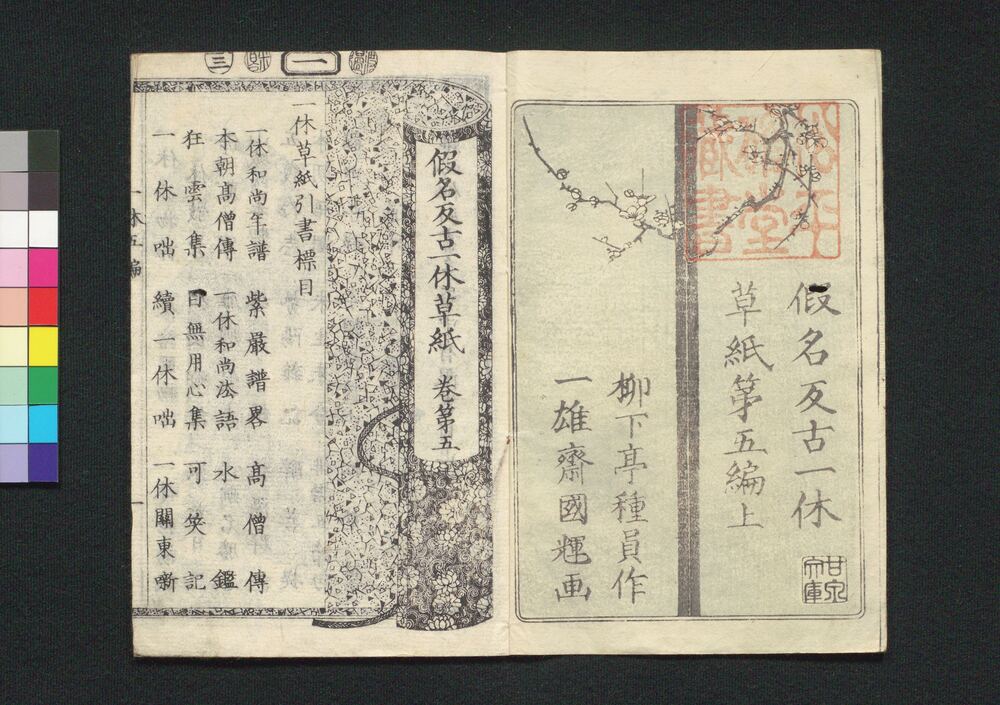 假名反古一休
草紙第五編上
柳下亭種員作
一雄齋國輝画
甘泉
文庫
藏書
堂
三
一
假名反古一休草紙 卷第五
一休草紙引書標目
一休和尚年譜 紫嚴譜畧 髙僧傳
本朝髙僧傳 一休和尚法語 水鑑
狂雲集 一日無用心集 可笑記
一休物咄 續一休咄 一休關東噺
一休五編
一